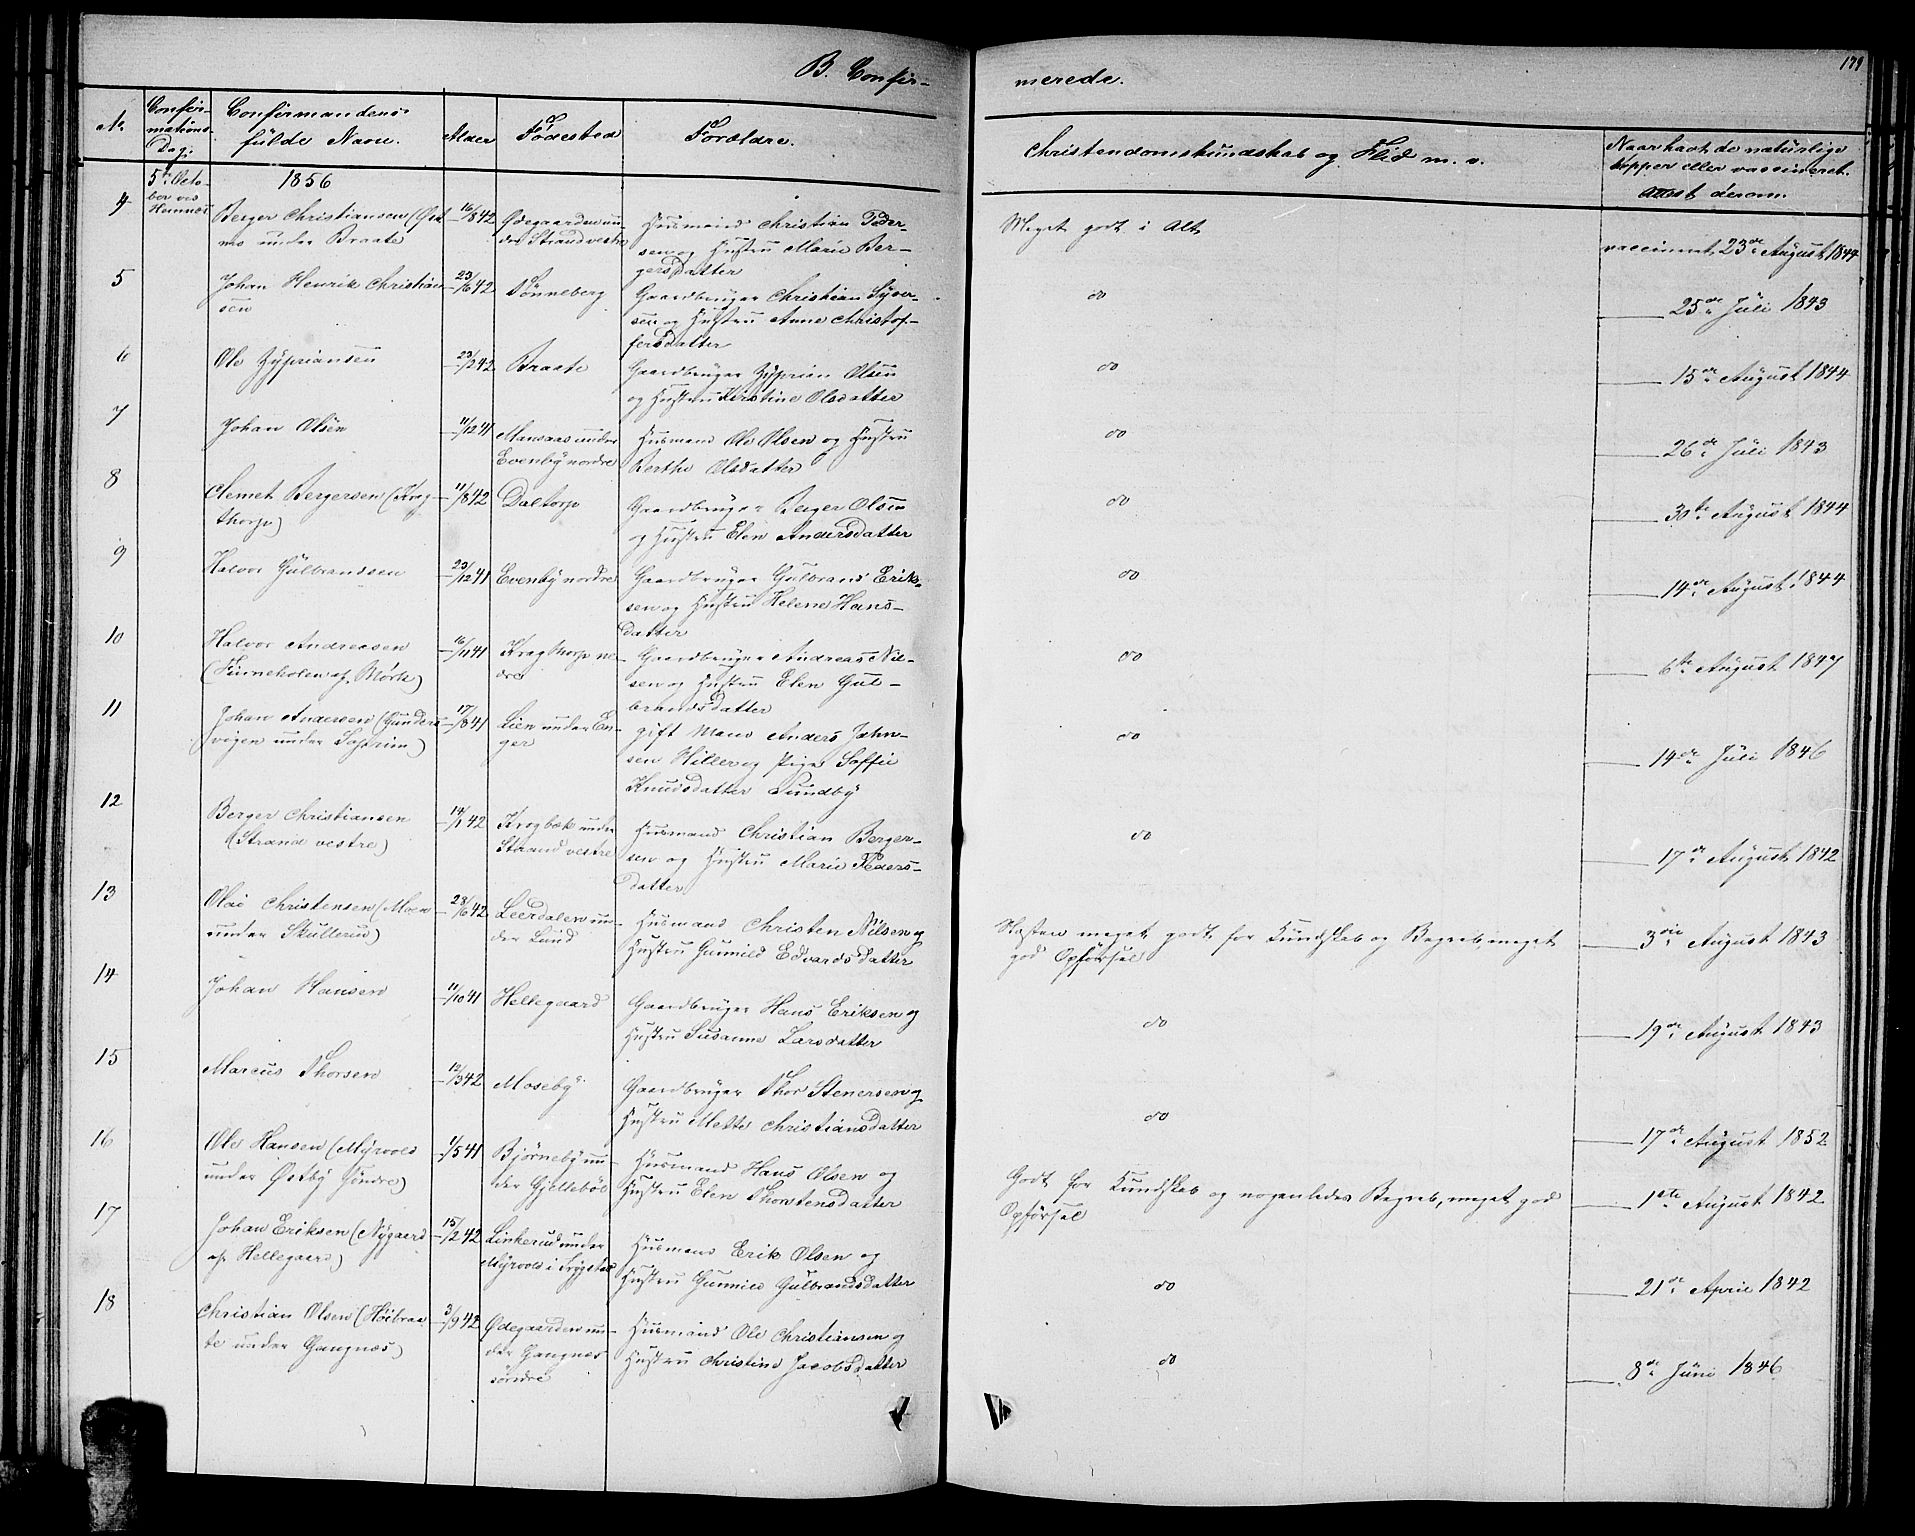 B. Confir-
merede.
179
No
Confir-
mations-
Dag.
Confirmandens
fulde Navn.
Alder
Fødested
Forældre.
Christendomskundskab og Flid m. v.
Naar havt de naturlige
Kopper eller vaccineret.
Attest derom.
5te Octo-
ber ved
Hemnæs
1856
4
Berger Christiansen (
under Braate
16/8 42
Ødegaarden un-
der Strand vestre
Husmand Christian Peder-
sen og Hustru Marie Ber-
gersdatter
Meget godt i Alt
vaccineret 23de August 1844
5
Johan Henrik Christian
sen
23/6 42
Tønneberg
Gaardbruger Christian Syver-
sen og Hustru Anne Christof-
fersdatter
do
25de Juli 1843
6
Ole Zyprianssen
23/2 42
Braate
Gaardbruger Zyprian Olsen
og Hustru Kirstine Olsdatter
do
15de August 1844
7
Johan Olsen
11/12 41
Mansaas under
Evenby nordre
Husmand Ole Olsen og Hustru
Berthe Olsdatter
do
26de Juli 1843
8
Clemet Bergersen (Krog-
thorp)
11/8 42
Daltorp
Gaardbruger Berger Olsen
og Hustru Elen Andersdatter
do
30te August 1844
9
Halvor Gulbrandsen
23/12 41
Evenby nordre
Gaardbruger Gulbrand Erik-
sen og Hustru Helene Hans-
datter
do
14de August 1844
10
Halvor Andreasen
(Finneholen af Mørk)
16/11 41
Krogthorp ne-
dre
Gaardbruger Andreas Nil-
sen og Hustru Elen Gul-
brandsdatter
do
6te August 1847
11
Johan Andersen (Gunders-
vigen under )
17/8 41
Lien under En-
ger
gift Mand Anders John-
sen Hiller og Pige Soffie
Knudsdatter Sundby
do
14de Juli 1846
12
Berger Christiansen
(Strand vestre)
14/1 42
Krogbæk under
Strand vestre
Husmand Christian Berger-
sen og Hustru Marie Peders-
datter
do
17de August 1842
13
Olai Christensen (Moen
under Skullerud)
28/6 42
Leerdalen un-
der Lund
Husmand Christen Nilsen og
Hustru Gunnild Edvardsdatter
Næsten meget godt for Kundskab og Begreb, meget
god Opførsel
3die August 1843
14
Johan Hansen
11/10 41
Hellegaard
Gaardbruger Hans Eriksen og
Hustru Susanne Larsdatter
do
19de August 1843
15
Marcus Thorsen
12/3 42
Moseby
Gaardbruger Thor Stenersen og
Hustru Mette Christiansdatter
do
17de August 1852
16
Ole Hansen (Myrvold
under Østby søndre)
1/5 41
Bjørneby un-
der Gjellebøl
Husmand Hans Olsen og
Hustru Elen Thorstensdatter
Godt for Kundskab og nogenledes Begreb, meget god
Opførsel
1ste August 1842
17
Johan Eriksen (Nygaard
af Hellegaard)
15/2 42
Linkerud under
Myrvold i Trygstad
Husmand Erik Olsen og
Hustru Gunnild Gulbrandsdatter
do
21de April 1842
18
Christian Olsen (Høibraa-
te under Gangnæs)
3/9 42
Ødegaarden un-
der Gangnes
søndre
Husmand Ole Christiansen og
Hustru Christine Jacobsdatter
do
8de Juni 1846